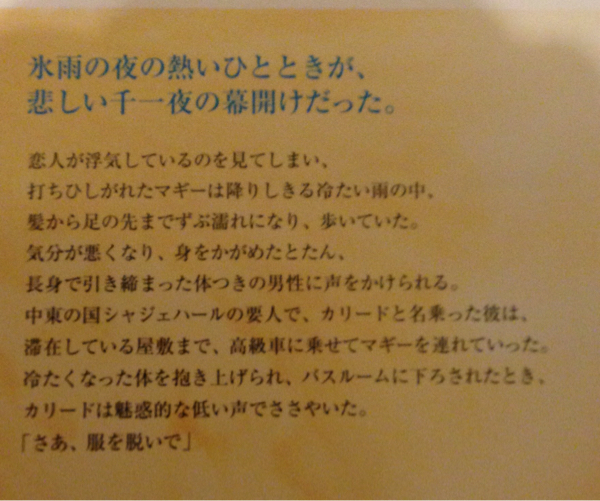 氷雨の夜の熱いひとときが、
悲しい千一夜の幕開けだった。
恋人が浮気しているのを見てしまい、
打ちひしがれたマギーは降りしきる冷たい雨の中、
髪から足の先までずぶ濡れになり、歩いていた。
気分が悪くなり、身をかがめたとたん、
長身で引き締まった体つきの男性に声をかけられる。
中東の国シャジェハールの要人で、カリードと名乗った彼は、
滞在している屋敷まで、高級車に乗せてマギーを連れていった。
冷たくなった体を抱き上げられ、バスルームに下ろされたとき、
カリードは魅惑的な低い声でささやいた。
「さあ、服を脱いで」